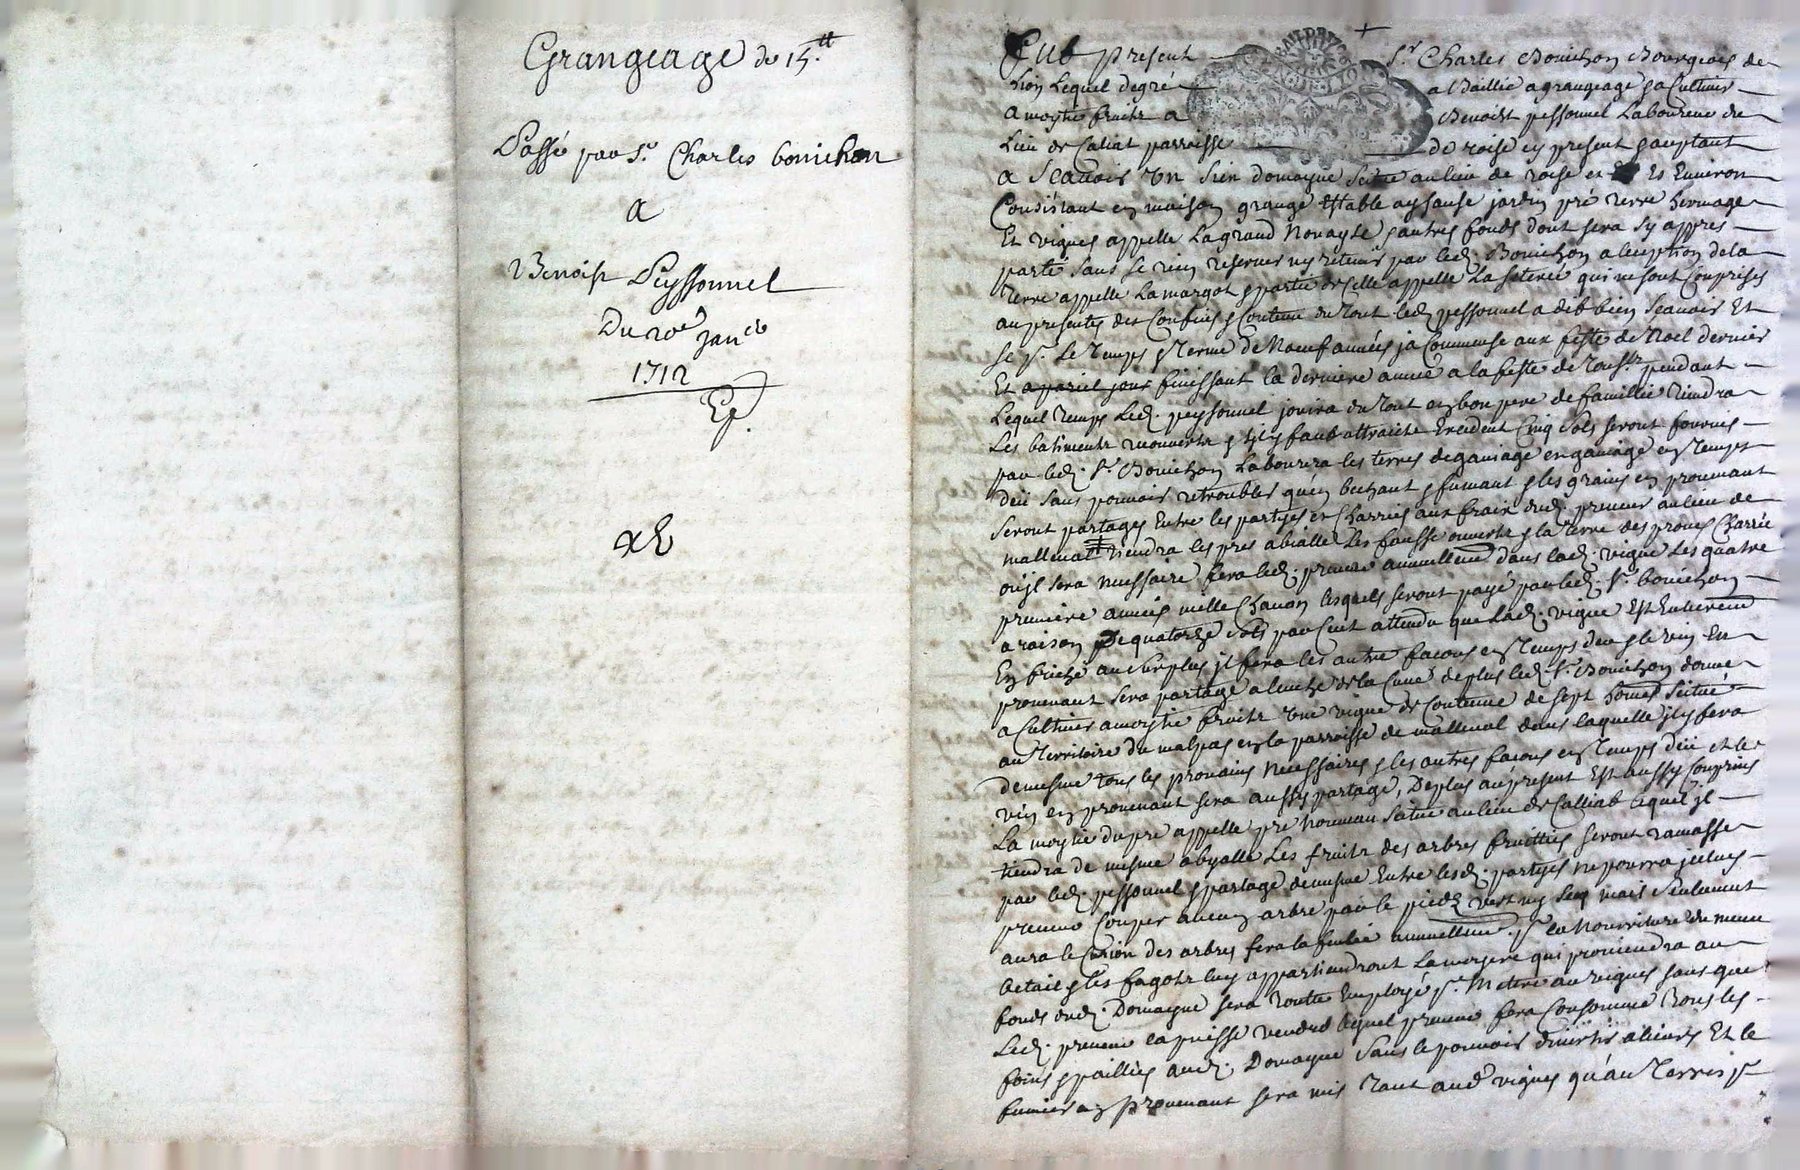 Grangeage de 15.tt
Passé par Sr. Charles bonichon
a
Benoist Peyssonnel
Du 20e Janer
1712
Fut present Sr. Charles Bonichon Bourgeois de
Lion Lequel degré a Baillié a grangeage & a Cultiver
a moytié fruits a Benoist pessonnel Laboureur du
Lieu de Caliat parroisse de roise cy present & aceptant
a Scavoir Un Sien domayne Scitué au lieu de roise et Es Environ
Consistant en maison grange Estable aysance jardin pré terre hermage
Et vignes appellé La grand & autres fonds dont sera Sy appres
parlé Sans Se rien reserver ny retenir par led. Bonichon a lexception de la
terre appellé La margot & partie de Celle appellé La qui ne sont Comprises
au presentes des Confins & Contenue du tout led. pessonnel a dit bien Scavoir Et
Se pr. Le temps & terme de Noeuf années ja Commense aux feste de Noel dernier
Et a pareil jour finissant la derniere année a la feste de pendant
Lequel temps Led. peyssonnel jouira du tout en bon pere de famillie tiendra
Les batiments & sil y faut Excedent Cinq Sols seront fournis
par led. Sr. Bonichon Labourera les terres de ganiage en ganiage en temps
deü sans pouvoir retroubles qu'en bechant & fumant & les grains en provenant
Seront partagés Entre les partyes et Charriés aux frais dud. preneur au lieu de
malleval tiendra les pres abialle Les fausse ouverts & la terre des proues Charrié
ou il sera nessaire fera led. preneur annuellemt dans lad. vigne Les quatre
premiere années mille Chavon lesquels seront payé par led. Sr. bonichon
a raison De quatorze Sols par Cent attendu que Lad. vigne Est Entierem
En friche au surplus il fera les autre facons en temps deu & le vin En
provenant sera partagé a lanche de la Cuve de plus led. Sr. Bonichon donne
a Cultiver a moytié fruits Une vigne de Contenue de sept homes Scitué
au territoire du malpas en la parroisse de malleval dans laquelle il y fera
de mesme tous les provains necessaires & les autres facons en temps deü et le
vin en provenant sera aussy partagé, De plus au present Est aussy Compris
La moytié du pre appellé pre Nouveau Scitué au lieu de Calliat lequel il
tiendra de mesme abyallé Les fruits des arbres fruitties seront ramasse
par led. pessonnel & partagé de mesme Entre lesd. partyes ne pourra iceluy
preneur Couper aucun arbre par le pied vert ny Secq mais Seulement
aura le des arbres fera la annuellem pr. La Nourriture du menu
betail & les fagots luy appartiendront La qui proviendra au
fonds dud. Domayne sera toutte Employé pr. Metere au vignes sans que
Led. preneur la puisse vendre lequel preneur fera Consommer tous les
foins & paillies aud. Domayne Sans le pouvoir divertir alieurs Et le
fumier en provenant sera mis tant aud vignes qu'au terres pr